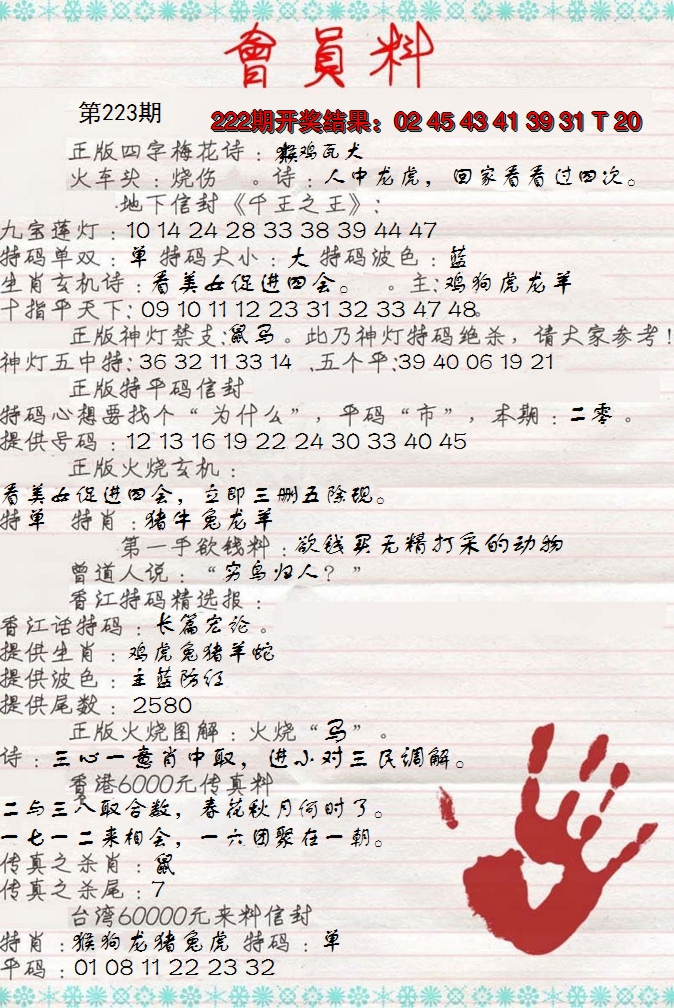 會員料
第223期
222期开奖结果：02 45 43 41 39 31 T 20
正版四字梅花诗：猴鸡瓦犬
火车头：烧伤 。诗：人中龙虎，回家看看过四次。
地下信封《千王之王》：
九宝莲灯：10 14 24 28 33 38 39 44 47
特码单双：单 特码大小：大 特码波色：蓝
生肖玄机诗：看美女促进四会。 。主：鸡狗虎龙羊
十指平天下：09 10 11 12 23 31 32 33 47 48。
正版神灯禁支：鼠马。此乃神灯特码绝杀，请大家参考！
神灯五中特：36 32 11 33 14 .五个平：39 40 06 19 21
正版特平码信封
特码心想要找个“为什么”，平码“市”，本期：二零。
提供号码：12 13 16 19 22 24 30 33 40 45
正版火烧玄机：
看美女促进四会，立即三删五除现。
特单 特肖：猪牛兔龙羊
第一手欲钱料：欲钱买无精打采的动物
曾道人说：“穷鸟归人？”
香江特码精选报：
香江话特码：长篇宏论。
提供生肖：鸡虎兔猪羊蛇
提供波色：主蓝防红
提供尾数：2580
正版火烧图解：火烧“马”。
诗：三心一意肖中取，进小对三民调解。
香港6000元传真料
二与三八取合数，春花秋月何时了。
一七一二来相会，一六团聚在一朝。
传真之杀肖：鼠
传真之杀尾：7
台湾60000元来料信封
特肖：猴狗龙猪兔虎 特码：单
平码：01 08 11 22 23 32